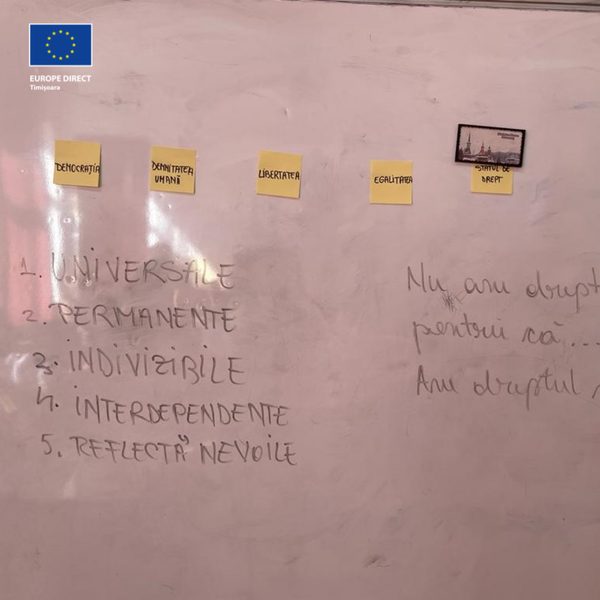 EUROPE DIRECT
Timișoara
DEMOCRAȚIA
DEMNITATEA
UMANĂ
LIBERTATEA
EGALITATEA
STATUL DE
DREPT
1. UNIVERSALE
2. PERMANENTE
3. INDIVIZIBILE
4. INTERDEPENDENTE
5. REFLECTĂ NEVOILE
Nu am drept
pentru că...
Am dreptul